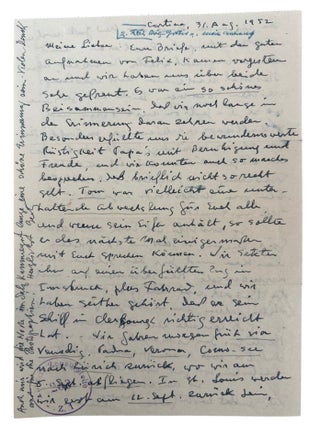 Cortina, 31. Aug. 1952
Meine Lieben: Eure Briefe, mit den guten
Aufnahmen von Felix, kamen vorgestern
an und wir haben uns über beide
sehr gefreut. Es war ein so schönes
Beisammensein, daß wir noch lange in
der Erinnerung daran zehren werden.
Besonders erfüllte uns die bewundernswerte
Rüstigkeit Papa's mit Beruhigung und
Freude, und wir konnten auch so manches
besprechen, das brieflich nicht so recht
geht. Tom war vielleicht eine unter-
haltende Abwechslung für Euch alle
und wenn sein Eifer anhält, so sollte
er das nächste Mal einigermaßen
mit Euch sprechen können. Wir setzten
ihn auf einen überfüllten Zug in
Innsbruck, plus Fahrrad, und wir
haben seither gehört, daß er sein
Schiff in Cherbourg richtig erreicht
hat. Wir fahren morgen früh via
Venedig, Padua, Verona, Como-see
nach Zürich zurück, wo wir am
Sept. abfliegen. In St. Louis werden
wir erst am 12. Sept. zurück sein,
Auch uns wird die Note noch lange eine schöne Erinnerung sein. Vielen Dank